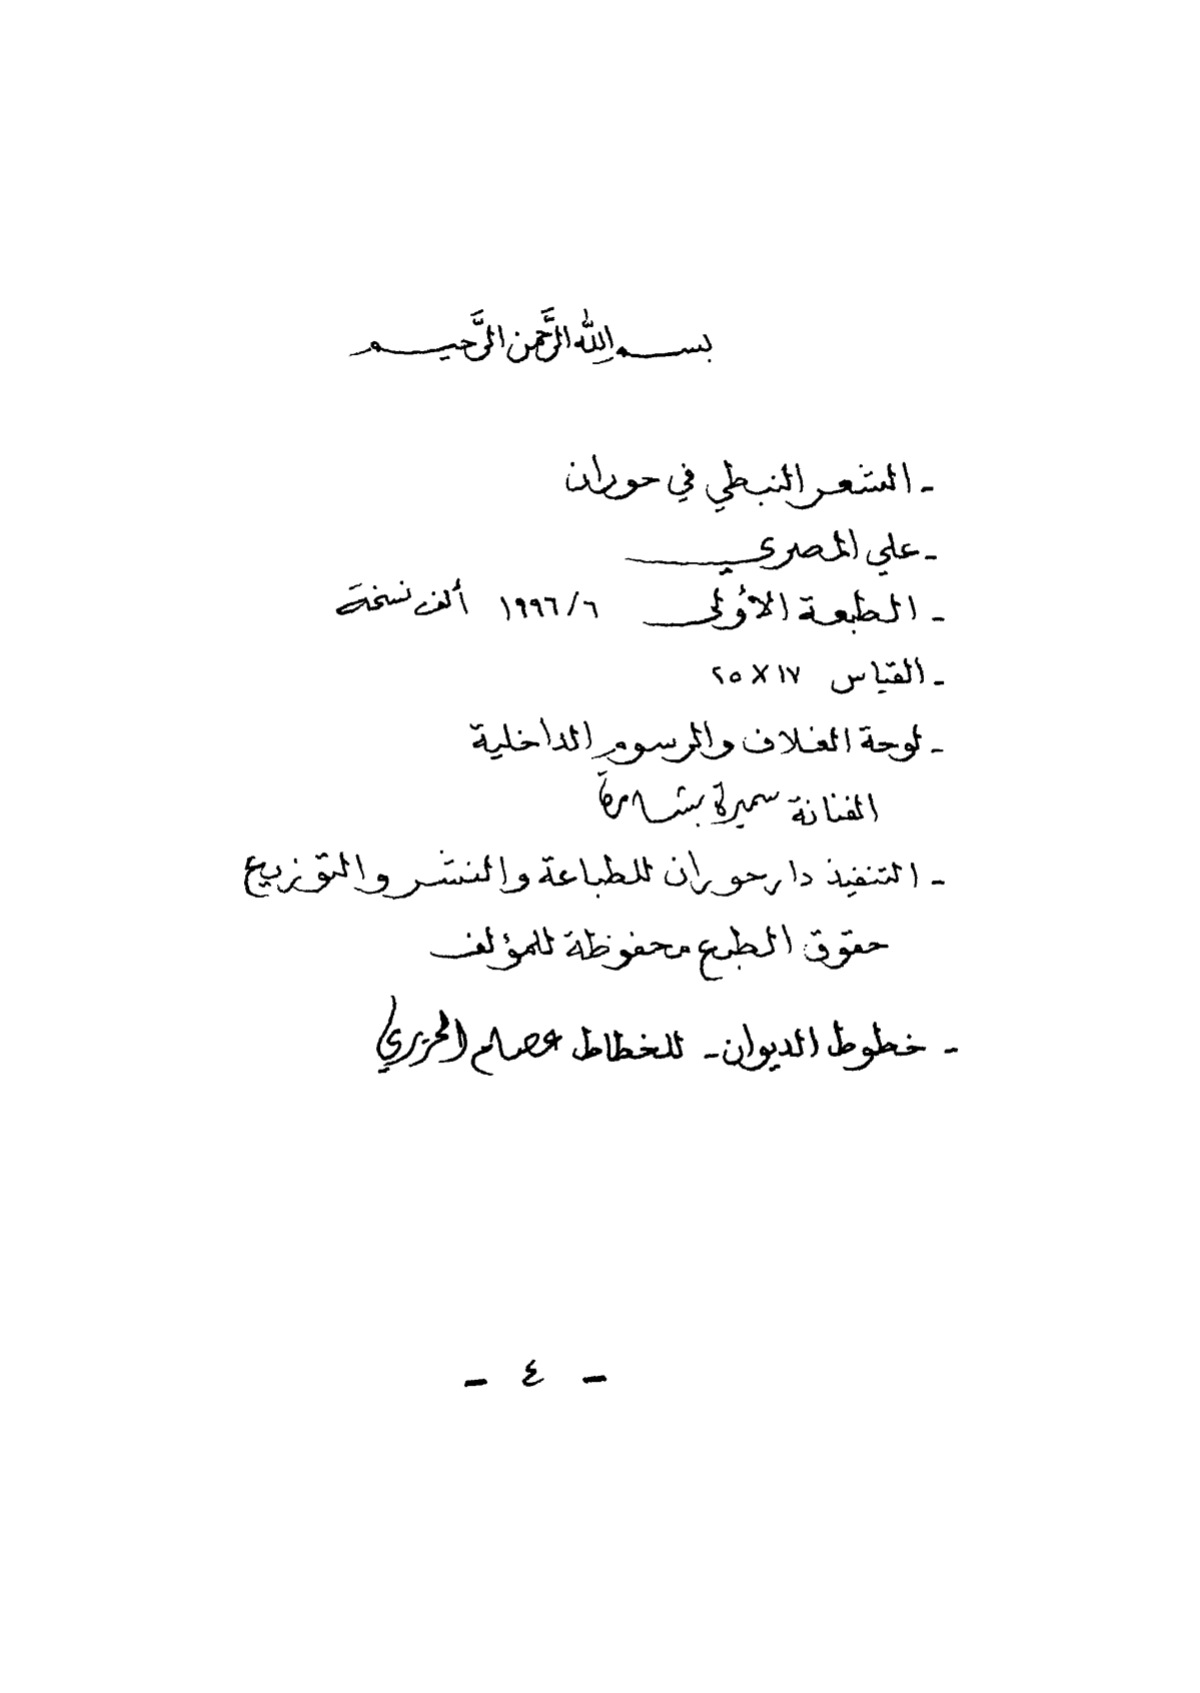 بسم الله الرَّحمن الرَّحيم
- الشعر النبطي في حوران
- علي المصري
- الطبعة الأولى ١٩٩٦/٦ ألف نسخة
- القياس ١٧ X ٢٥
- لوحة الغلاف والرسوم الداخلية
الفنانة سميرة بشارة
- التنفيذ دار حوران للطباعة والنشر والتوزيع
حقوق الطبع محفوظة للمؤلف
- خطوط الديوان - للخطاط عصام الحريري
- ٤ -